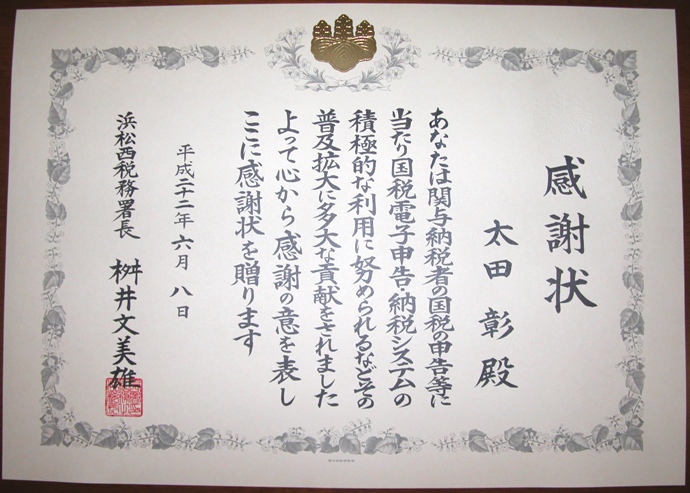 感謝状
太田彰殿
あなたは関与納税者の国税の申告等に
当たり国税電子申告・納税システムの
積極的な利用に努められるなどその
普及拡大に多大な貢献をされました
よって心から感謝の意を表し
ここに感謝状を贈ります
平成二十二年六月八日
浜松西税務署長 桝井文美雄